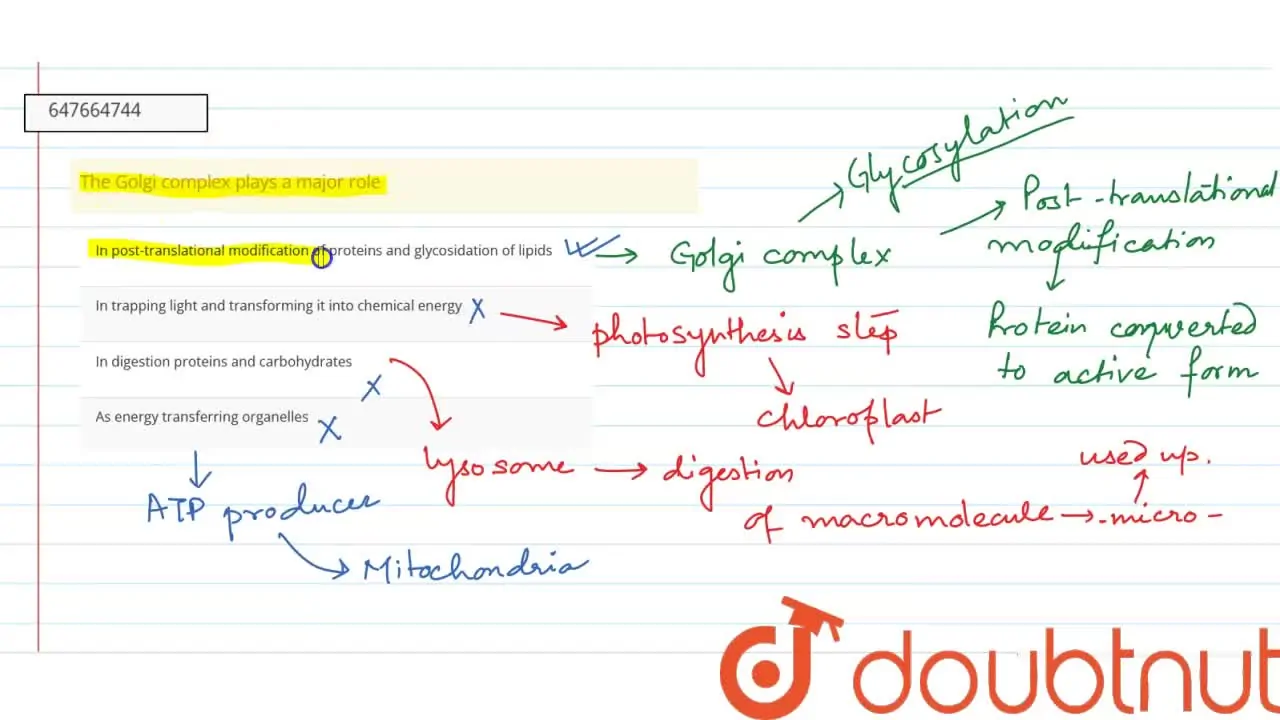 647664744
The Golgi complex plays a major role
In post-translational modification of proteins and glycosidation of lipids
In trapping light and transforming it into chemical energy
In digestion proteins and carbohydrates
As energy transferring organelles
Glycosylation
Golgi complex
Post-translational
modification
Protein converted
to active form
photosynthesis step
chloroplast
lysosome
digestion
of macromolecule
micro-
used up.
ATP producer
Mitochondria
doubtnut